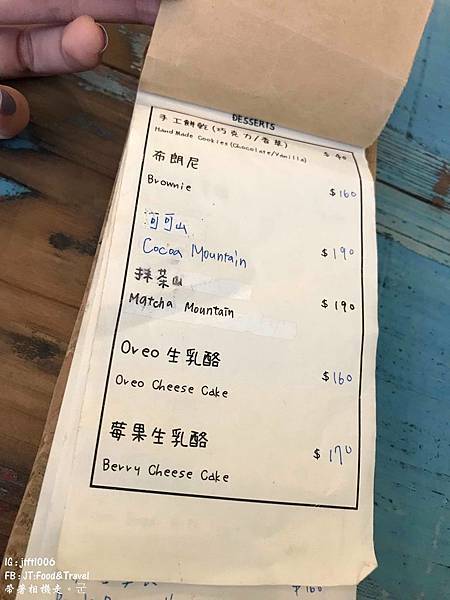 DESSERTS
手工餅乾(巧克力/香草)
Hand Made Cookies(Chocolate/Vanilla) $ 40
布朗尼
Brownie $160
可可山
Cocoa Mountain $190
抹茶山
Matcha Mountain $190
Oreo 生乳酪
Oreo Cheese Cake $160
莓果生乳酪
Berry Cheese Cake $170
IG : jfft1006
FB : JT:Food&Travel
帶著相機走。
$160